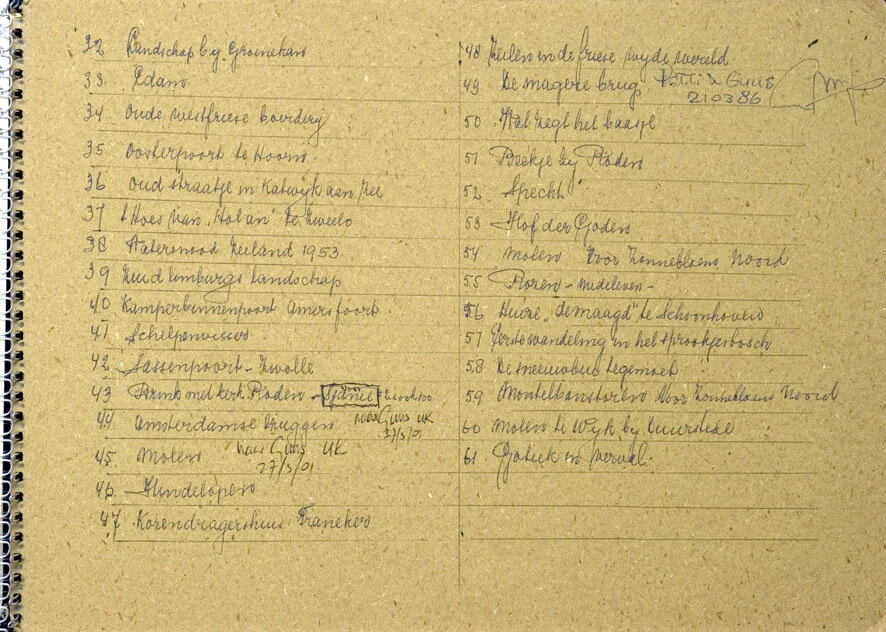 32 Landschap by Groenekan
33. Edam
34 Oude westfriese boerdery
35 Oosterpoort te Hoorn.
36 Oud straatje in Katwyk aan Zee
37 t Hoes van "Hol an" te Zweelo
38 Watersnood Zeeland 1953
39 Zuid limburgs landschap
40 Kamperbinnenpoort Amersfoort.
41 Schelpenvissers
42 Sassenpoort - Zwolle
43 Brink met kerk Roden -
44 Amsterdamse bruggen naar Guus UK
27/3/01
45 Molen naar Guus UK
27/3/01
46. Hindelopen
47 Korendragershuis Franeker
48 Zeilen in de friese wyde wereld
49 De magere brug Patti & Guus
210386
50 Wat zegt het baasje
51 Beekje by Roden
52. Specht
53 Hof der Goden
54 Molen voor Zonnebloem Noord
55 Rozen - medeleven -
56 Huize "de maagd" te Schoonhoven
57 Eerste wandeling in het sprookjesbosch
58 De sneeuwbui tegemoet
59 Montelbaanstoren voor Zonnebloem Noord
60 Molen te Wyk by Duurstede
61 Gotiek in verval.